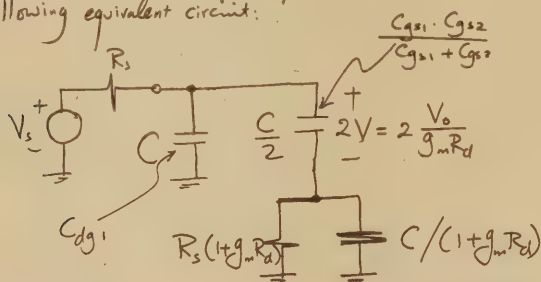 llowing equivalent circuit:
Cgs1 · Cgs2
Cgs1 + Cgs2
Rs
+
Vs
-
C
C/2
+
2V = 2 Vo/gmRd
-
Cdg1
Rs(1+gmRd)
C/(1+gmRd)